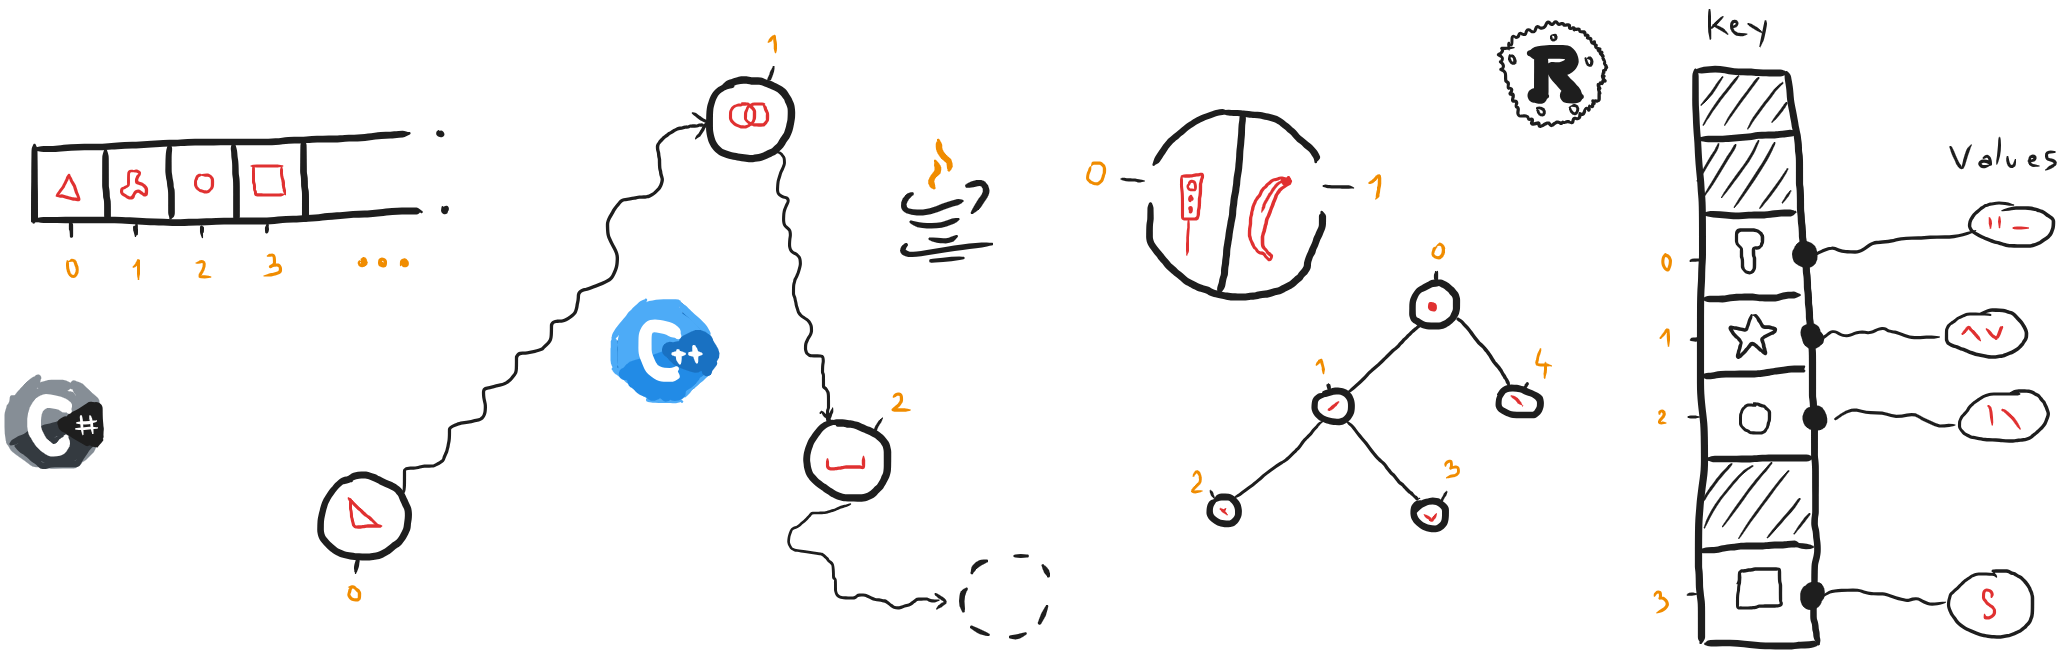 0 1 2 3 ...
C#
0
1
2
C++
0 1
0
1
4
2
3
R
key
Values
0
1
2
3
S